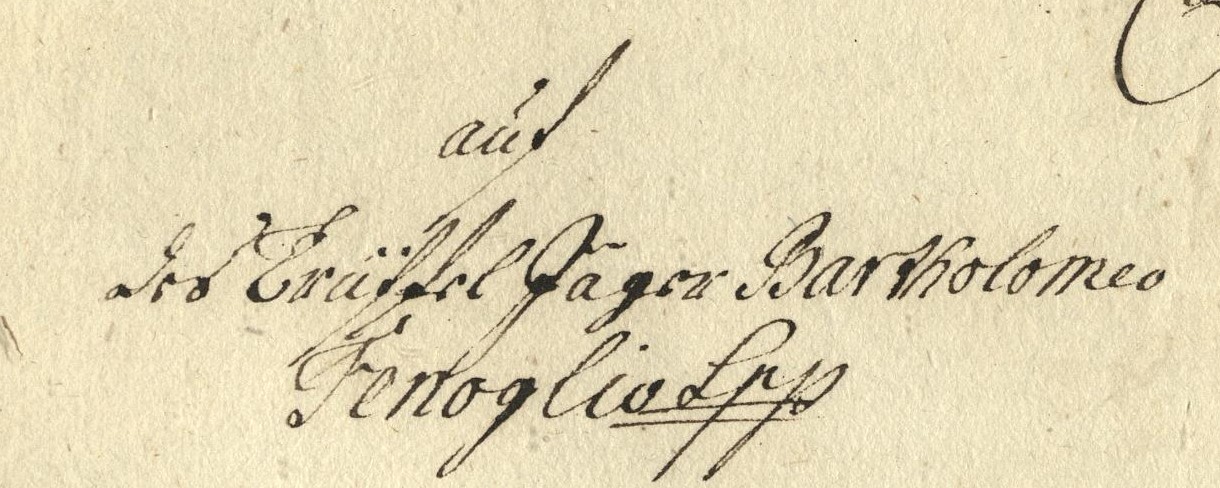 auf
des Trüffel Jäger Bartholomeo
Fenoglio